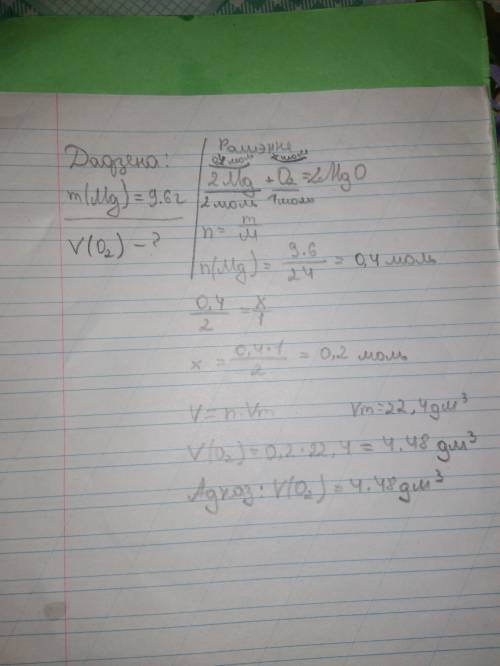 Дадзена:
m(Mg) = 9.6г
V(O₂) - ?
Рашэнне
0,4 моль x моль
2Mg + O₂ = 2MgO
2 моль 1 моль
n = m/M
n(Mg) = 9.6/24 = 0,4 моль
0,4/2 = x/1
x = 0,4·1/2 = 0,2 моль
V = n·Vm Vm = 22,4 дм³
V(O₂) = 0,2·22,4 = 4.48 дм³
Адказ: V(O₂) = 4.48 дм³